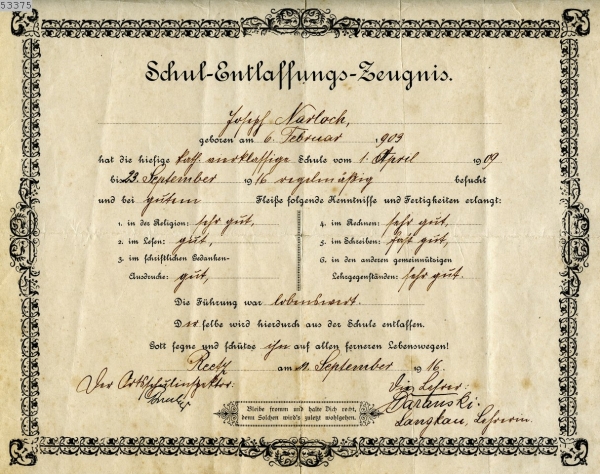 53375
Schul-Entlassungs-Zeugnis.
Joseph Narloch,
geboren am 6. Februar 1903
hat die hiesige kath. vierklassige Schule vom 1. April 1909
bis 23. September 1916 regelmäßig besucht
und bei gutem Fleiße folgende Kenntnisse und Fertigkeiten erlangt:
1. in der Religion: sehr gut,
2. im Lesen: gut,
3. im schriftlichen Gedanken-
Ausdrucke: gut,
4. im Rechnen: sehr gut,
5. im Schreiben: fast gut,
6. in den anderen gemeinnützigen
Lehrgegenständen: sehr gut.
Die Führung war lobenswert.
Derselbe wird hierdurch aus der Schule entlassen.
Gott segne und schütze ihn auf allen ferneren Lebenswegen!
Reetz am September 1916.
Der Ortsschulinspektor:
Die Lehrer:
Taranski.
Langkau, Lehrerin.
Bleibe fromm und halte Dich recht,
denn Solchen wird's zuletzt wohlgehen.